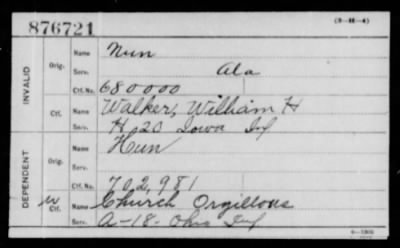 876721
(3-H-4)
INVALID
Orig.
Name Nun
Serv. Ala
Ctf. No. 680000
Ctf.
Name Walker, William H
Serv. H 20 Iowa Inf
DEPENDENT
Orig.
Name Hun
Serv.
Ctf. No. 702,981
W Ctf.
Name Church Orgillous
Serv. A-18-Ohio Inf